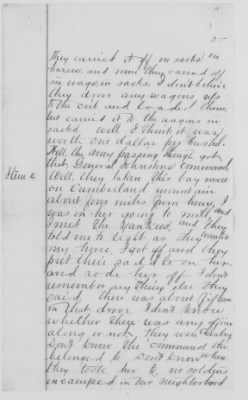 25
They carried it off in sacks on
horses, and some they carried off
in wagon sacks. I don't believe
they drove any wagons up
to the crib and loaded them,
but carried it to the wagons in
sacks. Well I think it was
worth one dollar per bushel.
Well the army passing through got
that, General Command
Item 2
Well, they taken this bay mare
on Cumberland mountain
about four miles from home, I
was on her going to mill, and
I met the Yankees, and they
told me to light as they wanted
my horse, I got off and they
put their saddle on her
and rode her off I don't
remember any thing else they
said, there was about fifteen
in that drove I don't know
whether there was any officer
along or not, They were cavalry
Don't know the command they
belonged to Don't know
they took her to, no soldiers
encamped in our neighborhood